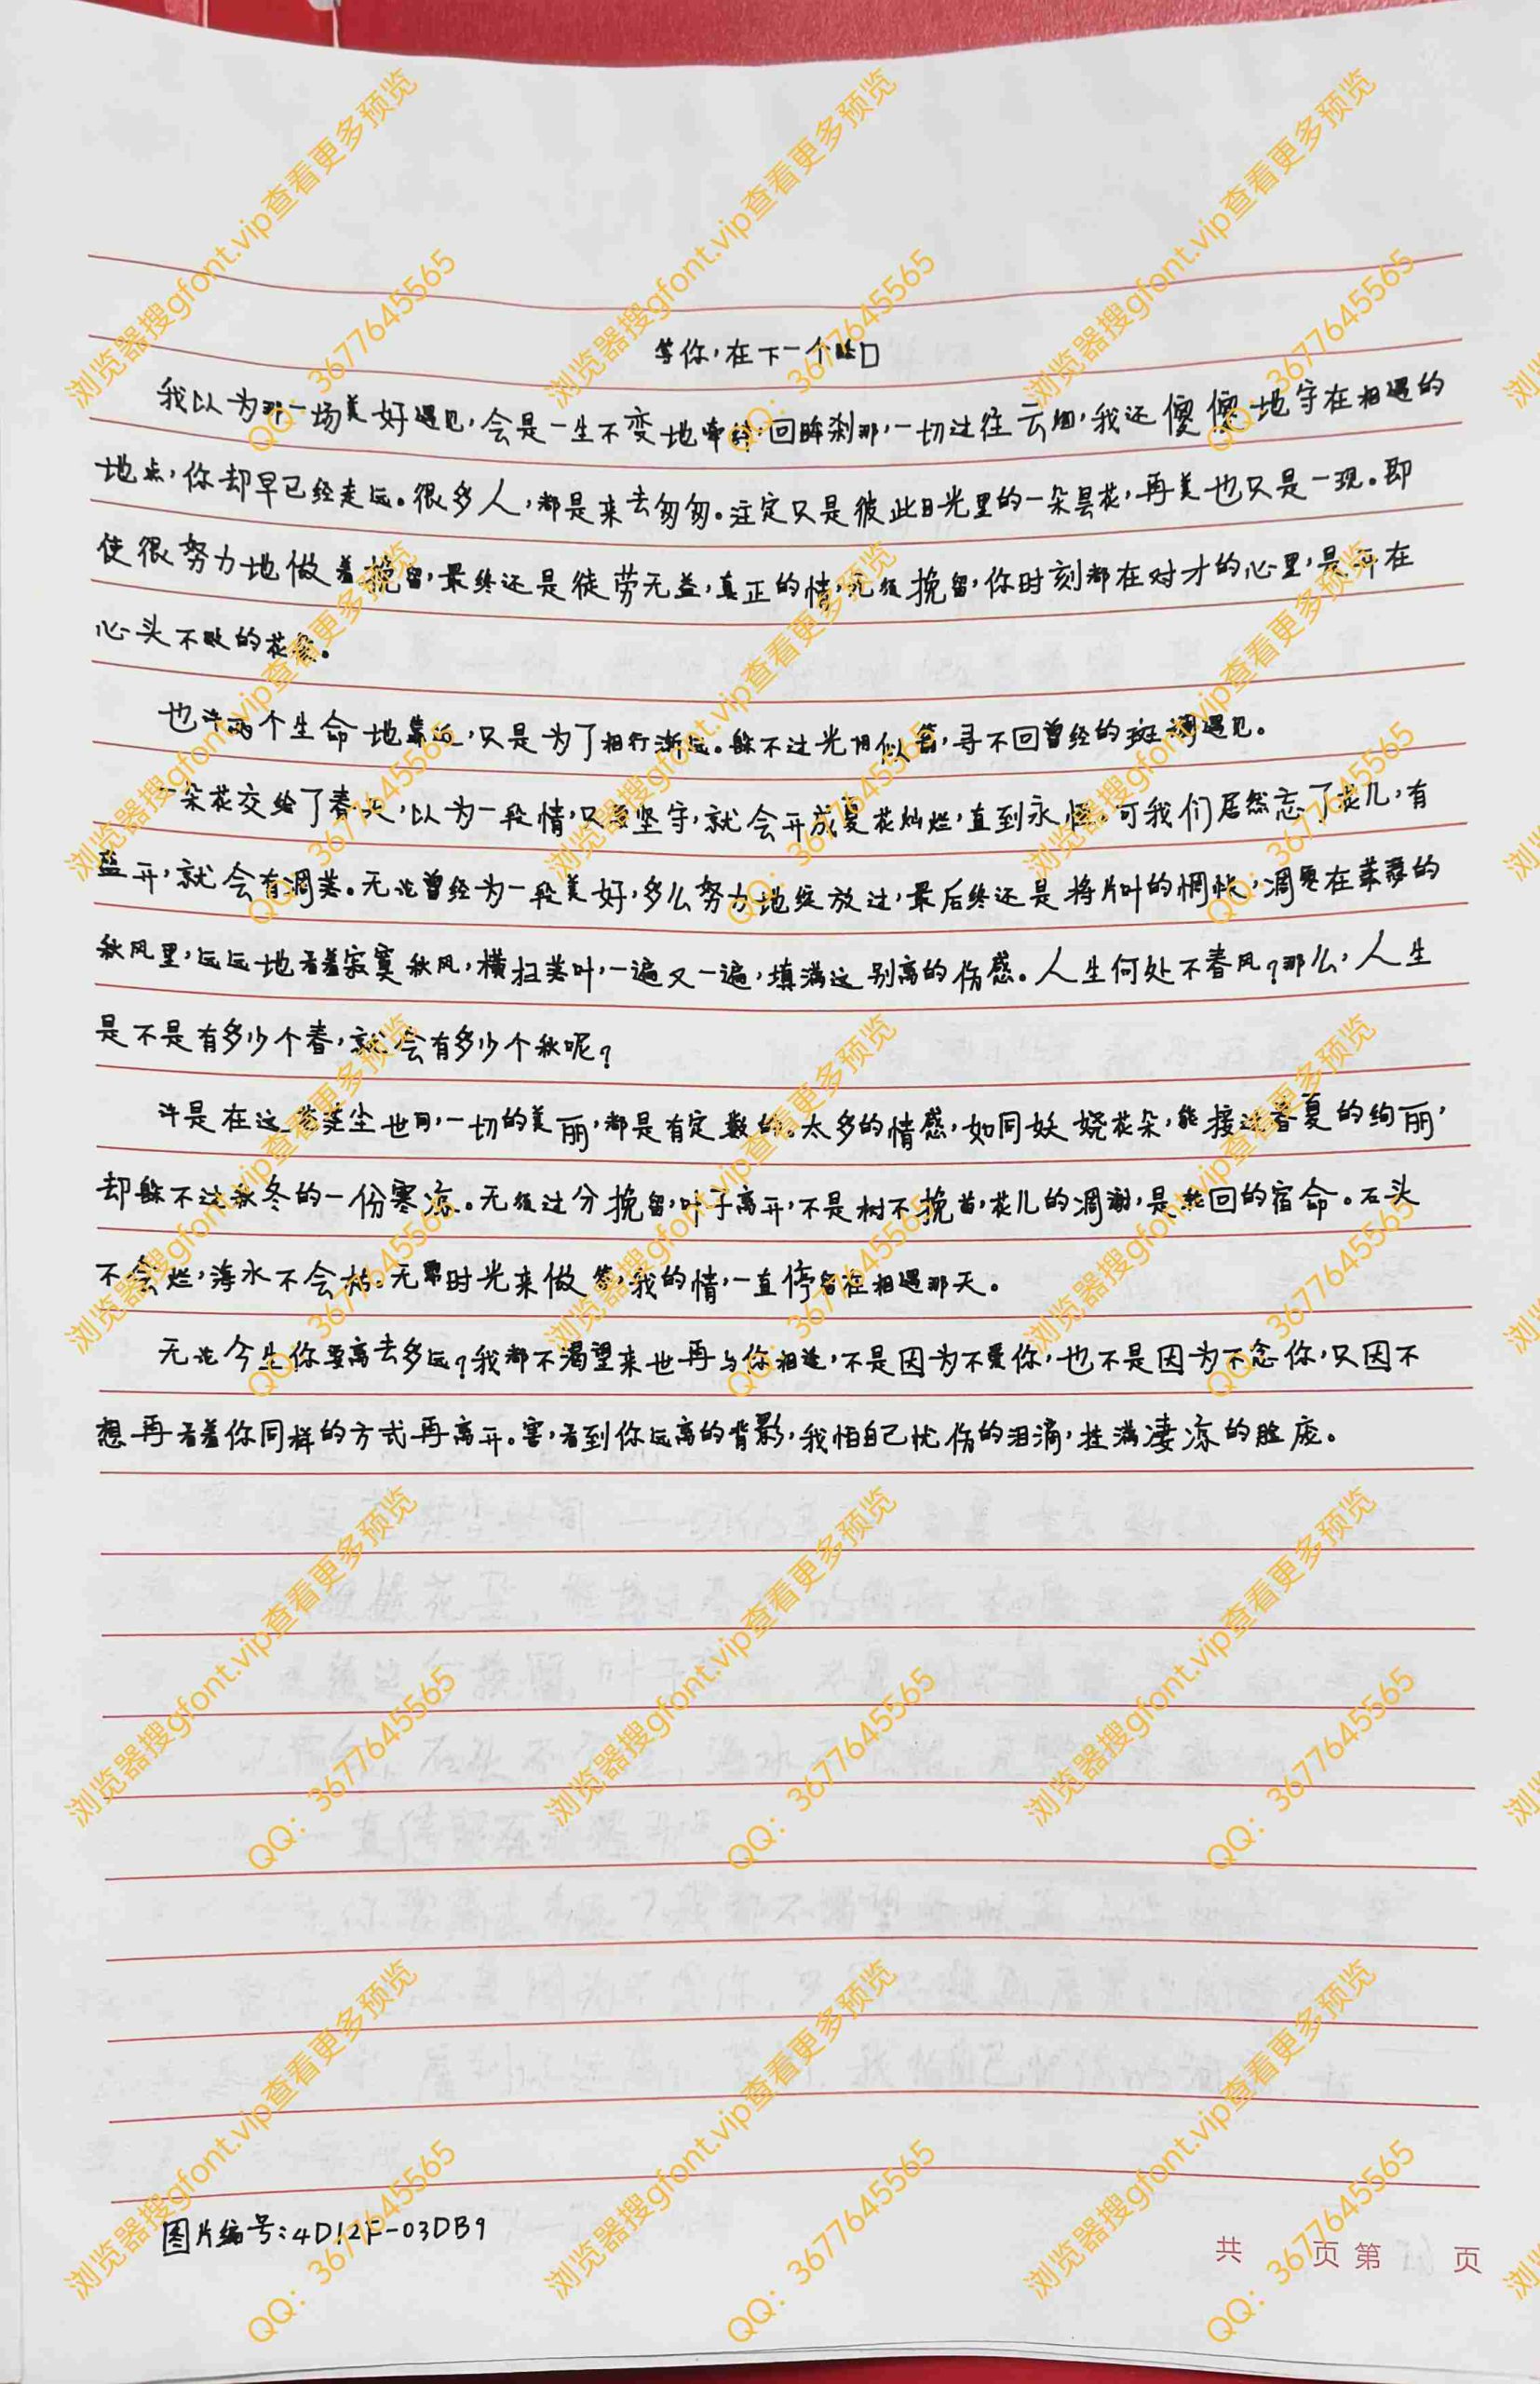 等你,在下一个路口
我以为那一场美好遇见,会是一生不变地牵绊,回眸刹那,一切过往云烟,我还傻傻地守在相遇的
地点,你却早已经走远。很多人,都是来去匆匆。注定只是彼此目光里的一朵昙花,再美也只是一现。即
使很努力地做着挽留,最终还是徒劳无益,真正的情,无须挽留,你时刻都在对才的心里,是开在
心头不败的花朵。
也许两个生命地靠近,只是为了相行渐远。躲不过光阴似箭,寻不回曾经的斑斓遇见。
一朵花交给了春天,以为一段情,只要坚守,就会开成夏花灿烂,直到永恒。可我们居然忘了花儿,有
盛开,就会有凋落。无论曾经为一段美好,多么努力地绽放过,最后终还是将片叶的惆怅,凋零在萧瑟的
秋风里,远远地看着寂寞秋风,横扫落叶,一遍又一遍,填满这别离的伤感。人生何处不春风?那么,人生
是不是有多少个春,就会有多少个秋呢?
许是在这苍茫尘世间,一切的美丽,都是有定数的。太多的情感,如同妖娆花朵,能接过春夏的绚丽,
却躲不过秋冬的一份寒凉。无须过分挽留,叶子离开,不是树不挽留,花儿的凋谢,是轮回的宿命。石头
不会烂,海水不会枯。无需时光来做答,我的情,一直停留在相遇那天。
无论今生你要离去多远?我都不渴望来世再与你相逢,不是因为不爱你,也不是因为不念你,只因不
想再看着你同样的方式再离开。害,看到你远离的背影,我怕自己忧伤的泪滴,挂满凄凉的脸庞。
图片编号:4D12F-03DB9
共 页 第 页
浏览器搜gfont.vip查看更多预览
QQ：3677645565